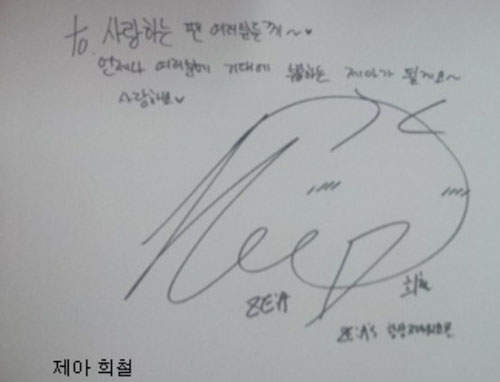 to. 사랑하는 팬 여러분들께~♥
언제나 여러분에 기대에 부응하는 제아가 될게요~
사랑해요♥
ZE:A
희철
ZE:A's
제아 희철